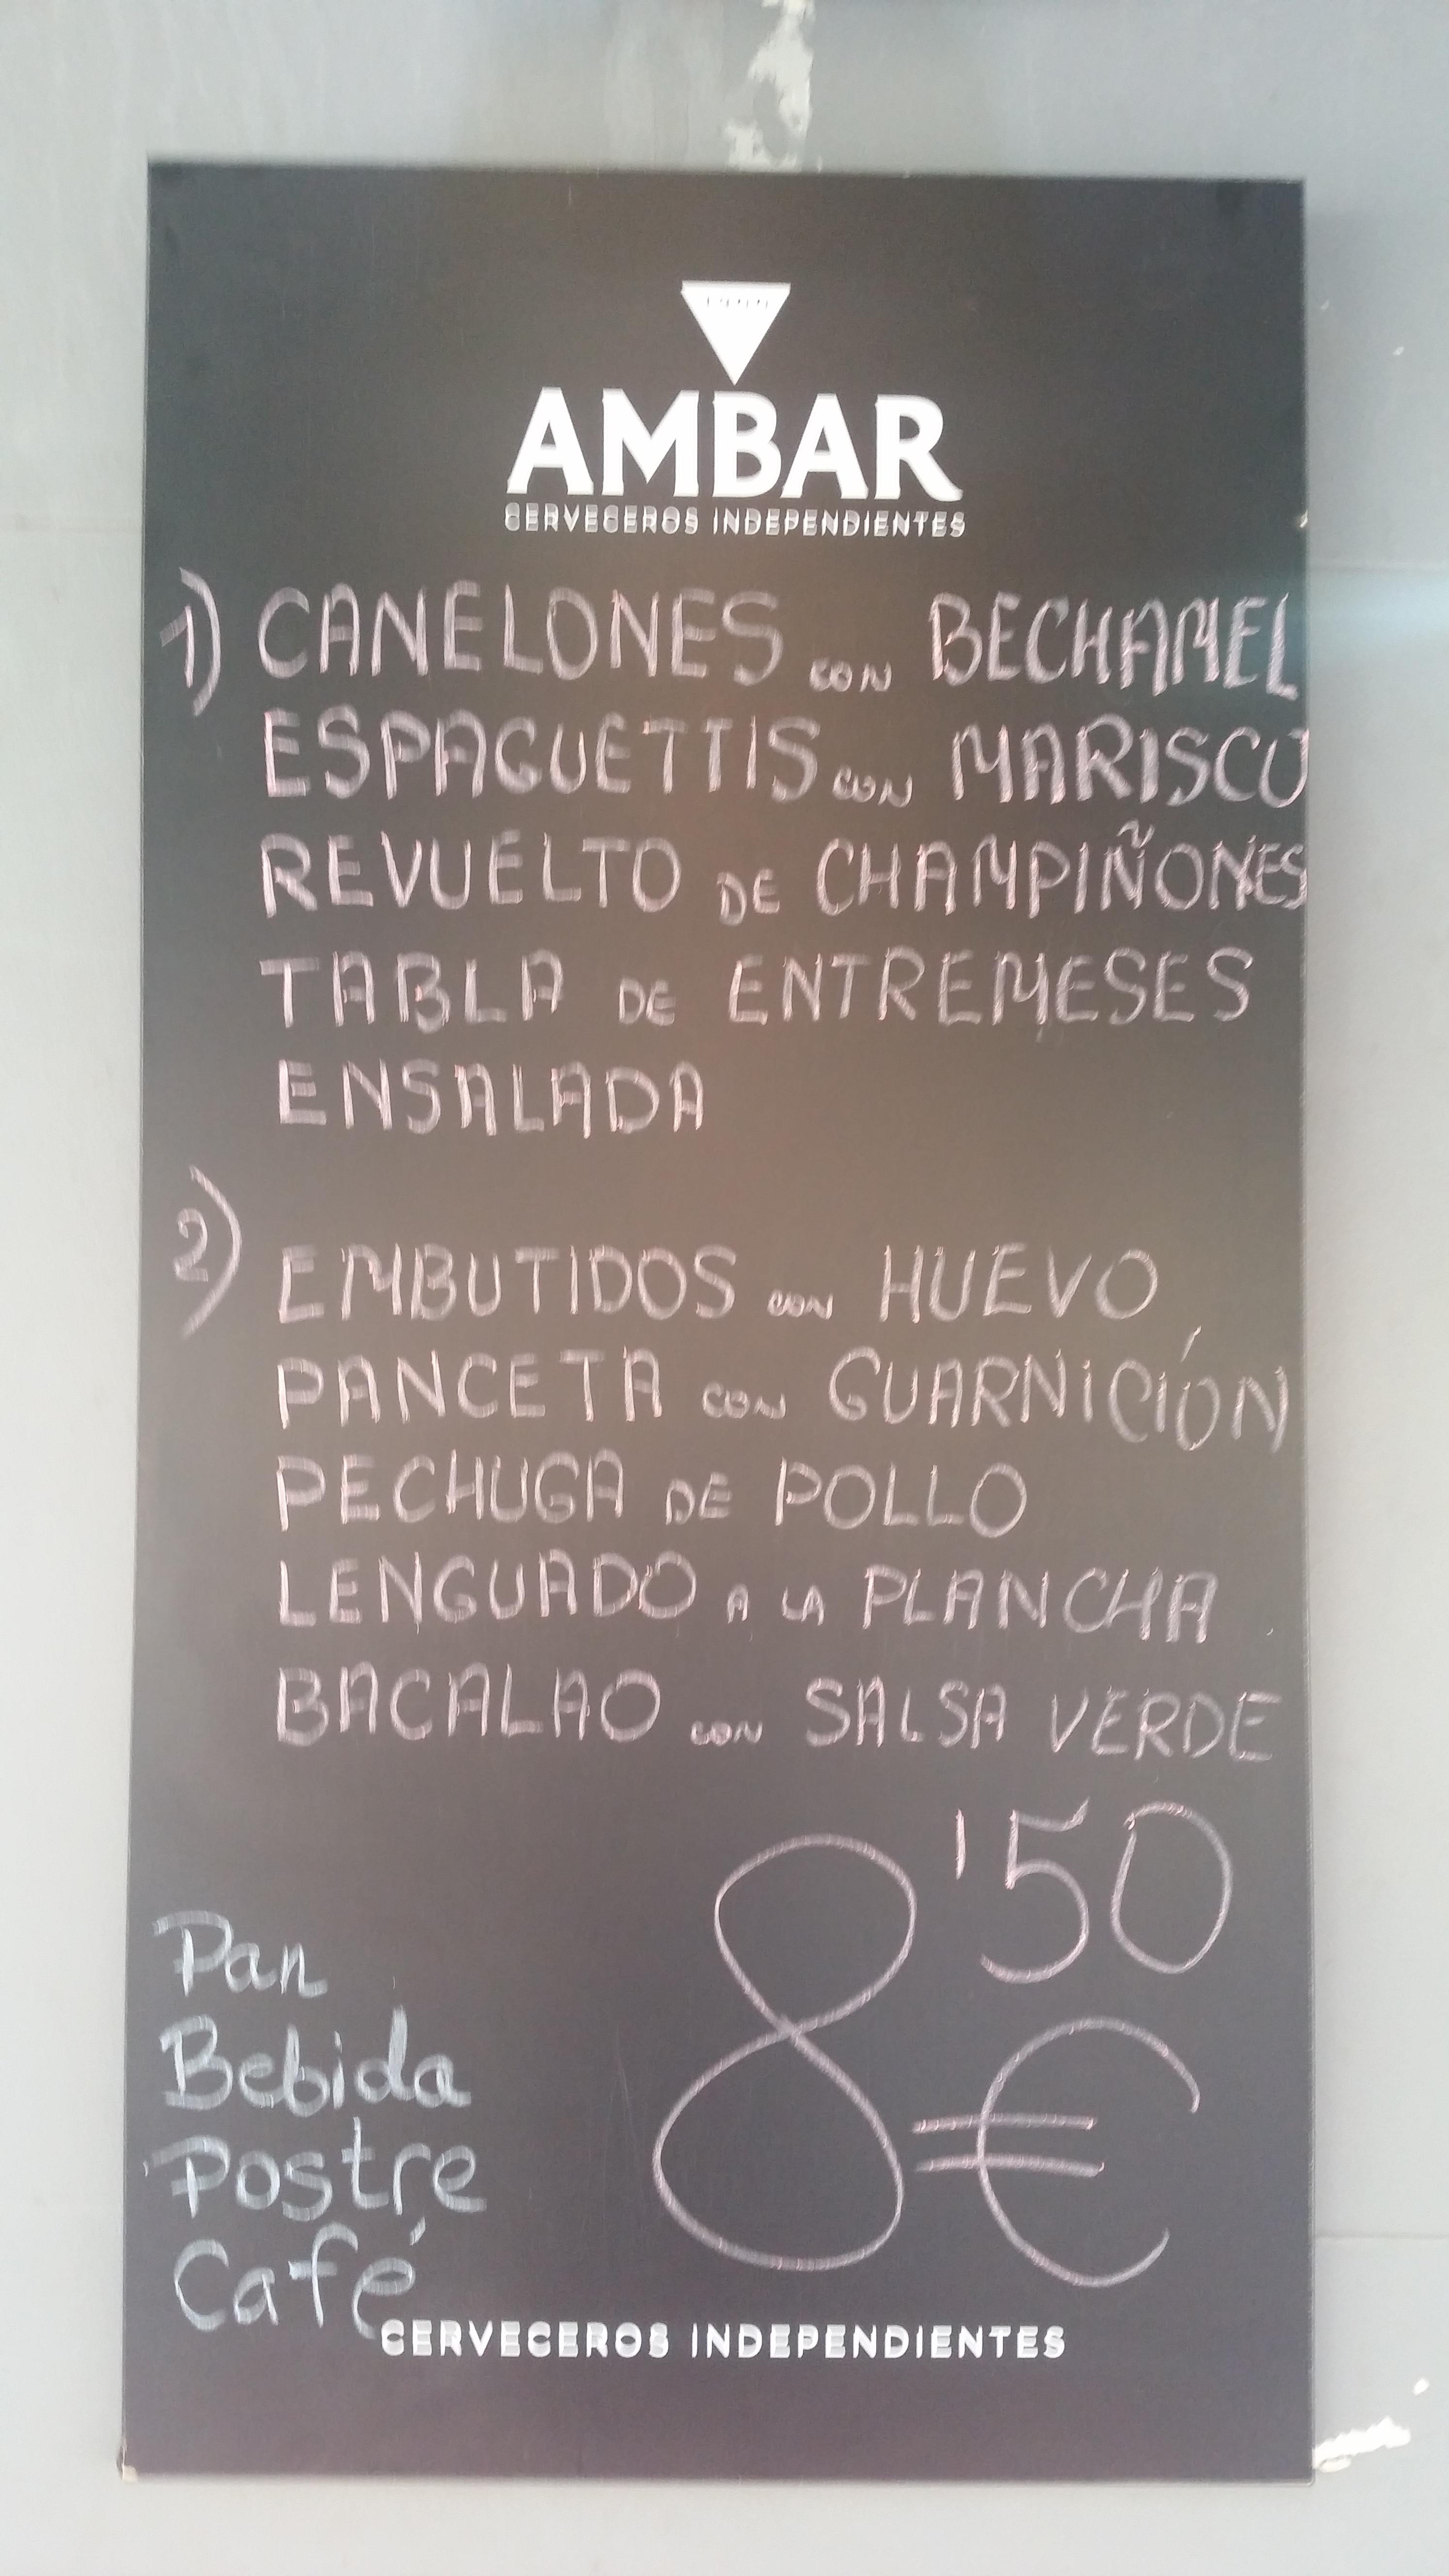 AMBAR
CERVECEROS INDEPENDIENTES
1) CANELONES CON BECHAMEL
ESPAGUETTIS CON MARISCO
REVUELTO DE CHAMPIÑONES
TABLA DE ENTREMESES
ENSALADA
2) EMBUTIDOS CON HUEVO
PANCETA CON GUARNICIÓN
PECHUGA DE POLLO
LENGUADO A LA PLANCHA
BACALAO CON SALSA VERDE
8'50 €
Pan
Bebida
Postre
Café
CERVECEROS INDEPENDIENTES